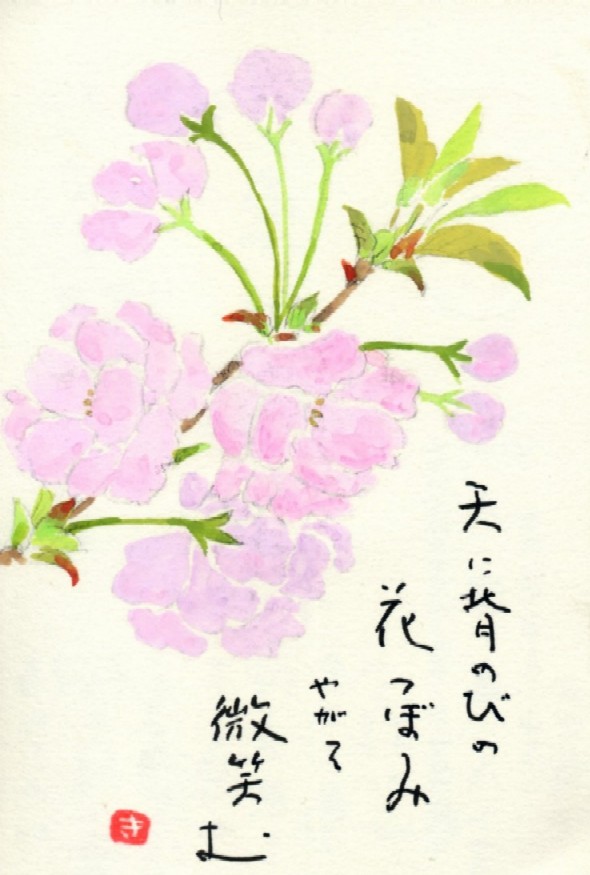 天に背のびの
花つぼみ
やがて
微笑む
き